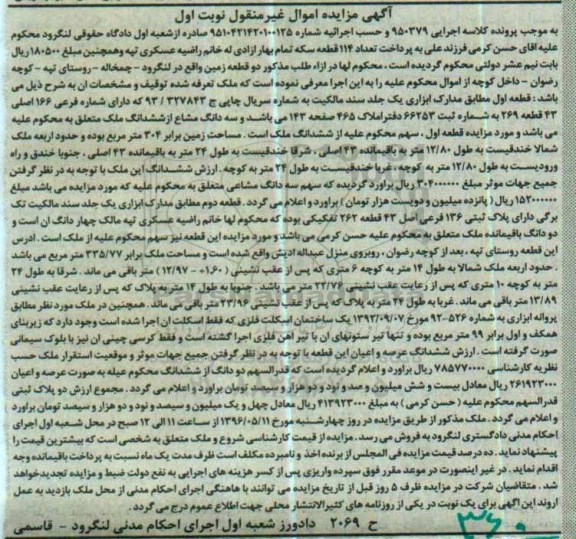 آگهی مزایده اموال غیرمنقول نوبت اول
به موجب پرونده کلاسه اجرایی ۹۵۰۳۷۹ و حسب اجرائیه شماره ۹۵۱۰۴۲۱۴۲۰۱۰۰۱۲۵ صادره ازشعبه اول دادگاه حقوقی لنگرود محکوم
علیه آقای حسن کرمی فرزند علی به پرداخت تعداد ۱۱۴ قطعه سکه تمام بهار ازادی له خانم راضیه عسکری تپه وهمچنین مبلغ ۱۸۰۵۰۰ ریال
بابت نیم عشر دولتی محکوم گردیده است ، محکوم لها در ازاء طلب مذکور دو قطعه زمین واقع در لنگرود - چمخاله - روستای تپه - کوچه
رضوان - داخل کوچه از اموال محکوم علیه را به این اجرا معرفی نموده است که ملک تعرفه شده توقیف و مشخصات ان به شرح ذیل می
باشد : قطعه اول مطابق مدارک ابرازی یک جلد سند مالکیت به شماره سریال چاپی ج ۳۲۷۸۴۳ / ۹۳ که دارای شماره فرعی ۱۶۶ اصلی
۴۳ قطعه ۲۶۹ به شماره ثبت ۶۶۲۵۳ دفتراملاک ۴۶۵ صفحه ۱۴۳ می باشد، و سه دانگ مشاع ازششدانگ ملک متعلق به محکوم علیه
می باشد و مورد مزایده قطعه اول ، سهم محکوم علیه از ششدانگ ملک است . مساحت زمین برابر ۳۰۴ متر مربع بوده و حدود اربعه ملک
شمالا خندقیست به طول ۱۲/۸۰ متر به باقیمانده ۴۳ اصلی ، شرقا خندقیست به طول ۲۴ متر به باقیمانده ۴۳ اصلی ، جنوبا خندق و راه
ورودیست به طول ۱۲/۸۰ متر به کوچه ، غربا خندقیست به طول ۲۴ متر به کوچه . ارزش ششدانگ این ملک با توجه به در نظر گرفتن
جمیع جهات موثر مبلغ ۳۰۴۰۰۰۰۰۰ ریال براورد گردیده که سهم سه دانگ مشاعی متعلق به محکوم علیه که مورد مزایده می باشد مبلغ
۱۵۲۰۰۰۰۰۰ ریال ( پانزده میلیون و دویست هزار تومان ) براورد و اعلام می گردد . قطعه دوم مطابق مدارک ابرازی یک جلد سند مالکیت تک
برگی دارای پلاک ثبتی ۱۳۶ فرعی اصل ۴۳ قطعه ۲۶۲ تفکیکی بوده که محکوم لها خانم راضیه عسکری تپه مالک چهار دانگ ان است و
دو دانگ باقیمانده ملک متعلق به محکوم علیه حسن کرمی می باشد و مورد مزایده این قطعه نیز سهم محکوم علیه از ملک است . ادرس
این قطعه روستای تپه ، بعد از کوچه رضوان ، روبروی منزل عبداله ادیش واقع شده است و مساحت ملک برابر ۳۳۵/۷۷ متر مربع می باشد
. حدود اربعه ملک شمالا به طول ۱۴ متر به کوچه ۶ متری که پس از عقب نشینی ( ۰۱٫۶۰ - ۱۲/۹۷ ) متر باقی می ماند . شرقا به طول ۲۴
متر به کوچه ۱۰ متری که پس از رعایت عقب نشینی ۲۲/۷۶ متر می باشد . جنوبا به طول ۱۴ متر به پلاک که پس از رعایت عقب نشینی
۱۳/۸۹ متر باقی می ماند . غربا به طول ۲۴ متر به پلاک که پس از عقب نشینی ۲۳/۹۶ متر باقی می ماند . همچنین در ملک مورد نظر مطابق
پروانه ابزاری به شماره ۵۲۶-۹۲ مورخ ۱۳۹۲/۰۹/۰۷ یک ساختمان اسکلت فلزی که فقط اسکلت ان اجرا شده است وجود دارد که زیربنای
همکف و اول برابر ۹۹ متر مربع بوده و تنها تیر ستونهای ان با تیر اهن فلزی اجرا گشته است و فقط کرسی چینی ان نیز با بلوک سیمانی
صورت گرفته است . ارزش ششدانگ عرصه و اعیان این قطعه با توجه به در نظر گرفتن جمیع جهات موثر و موقعیت استقرار ملک حسب
نظریه کارشناسی ۷۸۵۷۷۰۰۰۰ ریال براورد و اعلام گردیده است که قدرالسهم دو دانگ از ششدانگ محکوم عیله به صورت عرصه و اعیان
۲۶۱۹۲۳۰۰۰ ریال معادل بیست و شش میلیون و صد و نود و دو هزار و سیصد تومان براورد و اعلام می گردد . مجموع ارزش دو پلاک ثبتی
قدرالسهم محکوم علیه ( حسن کرمی ) به مبلغ ۴۱۳۹۲۳۰۰۰ ریال معادل چهل و یک میلیون و سیصد و نود و دو هزار و سیصد تومان براورد
و اعلام می گردد . ملک مذکور از طریق مزایده در روز چهارشنبه مورخ ۱۳۹۶/۰۵/۱۱ از ساعت ۱۱ الی ۱۲ صبح در محل شعبه اول اجرای
احکام مدنی دادگستری لنگرود به فروش می رسد . مزایده از قیمت کارشناسی شروع و ملک متعلق به شخصی است که بیشترین قیمت را
پیشنهاد نماید . ده درصد قیمت مزایده فی المجلس از برنده اخذ و نامبرده مکلف است ظرف مدت یک ماه نسبت به پرداخت باقیمانده وجه
اقدام نماید . در غیر اینصورت در موعد مقرر فوق سپرده واریزی پس از کسر هزینه های اجرایی به نفع دولت ضبط و مزایده تجدیدخواهد
شد . متقاضیان شرکت در مزایده ظرف ۵ روز قبل از تاریخ مزایده می توانند با هاهنگی اجرای احکام مدنی از محل ملک بازدید به عمل
اروند این اگهی برای یک نوبت در یکی از روزنامه های کثیرالانتشار محلی جهت اطلاع عموم درج می گردد .
ح ۲۰۶۹ دادورز شعبه اول اجرای احکام مدنی لنگرود - قاسمی